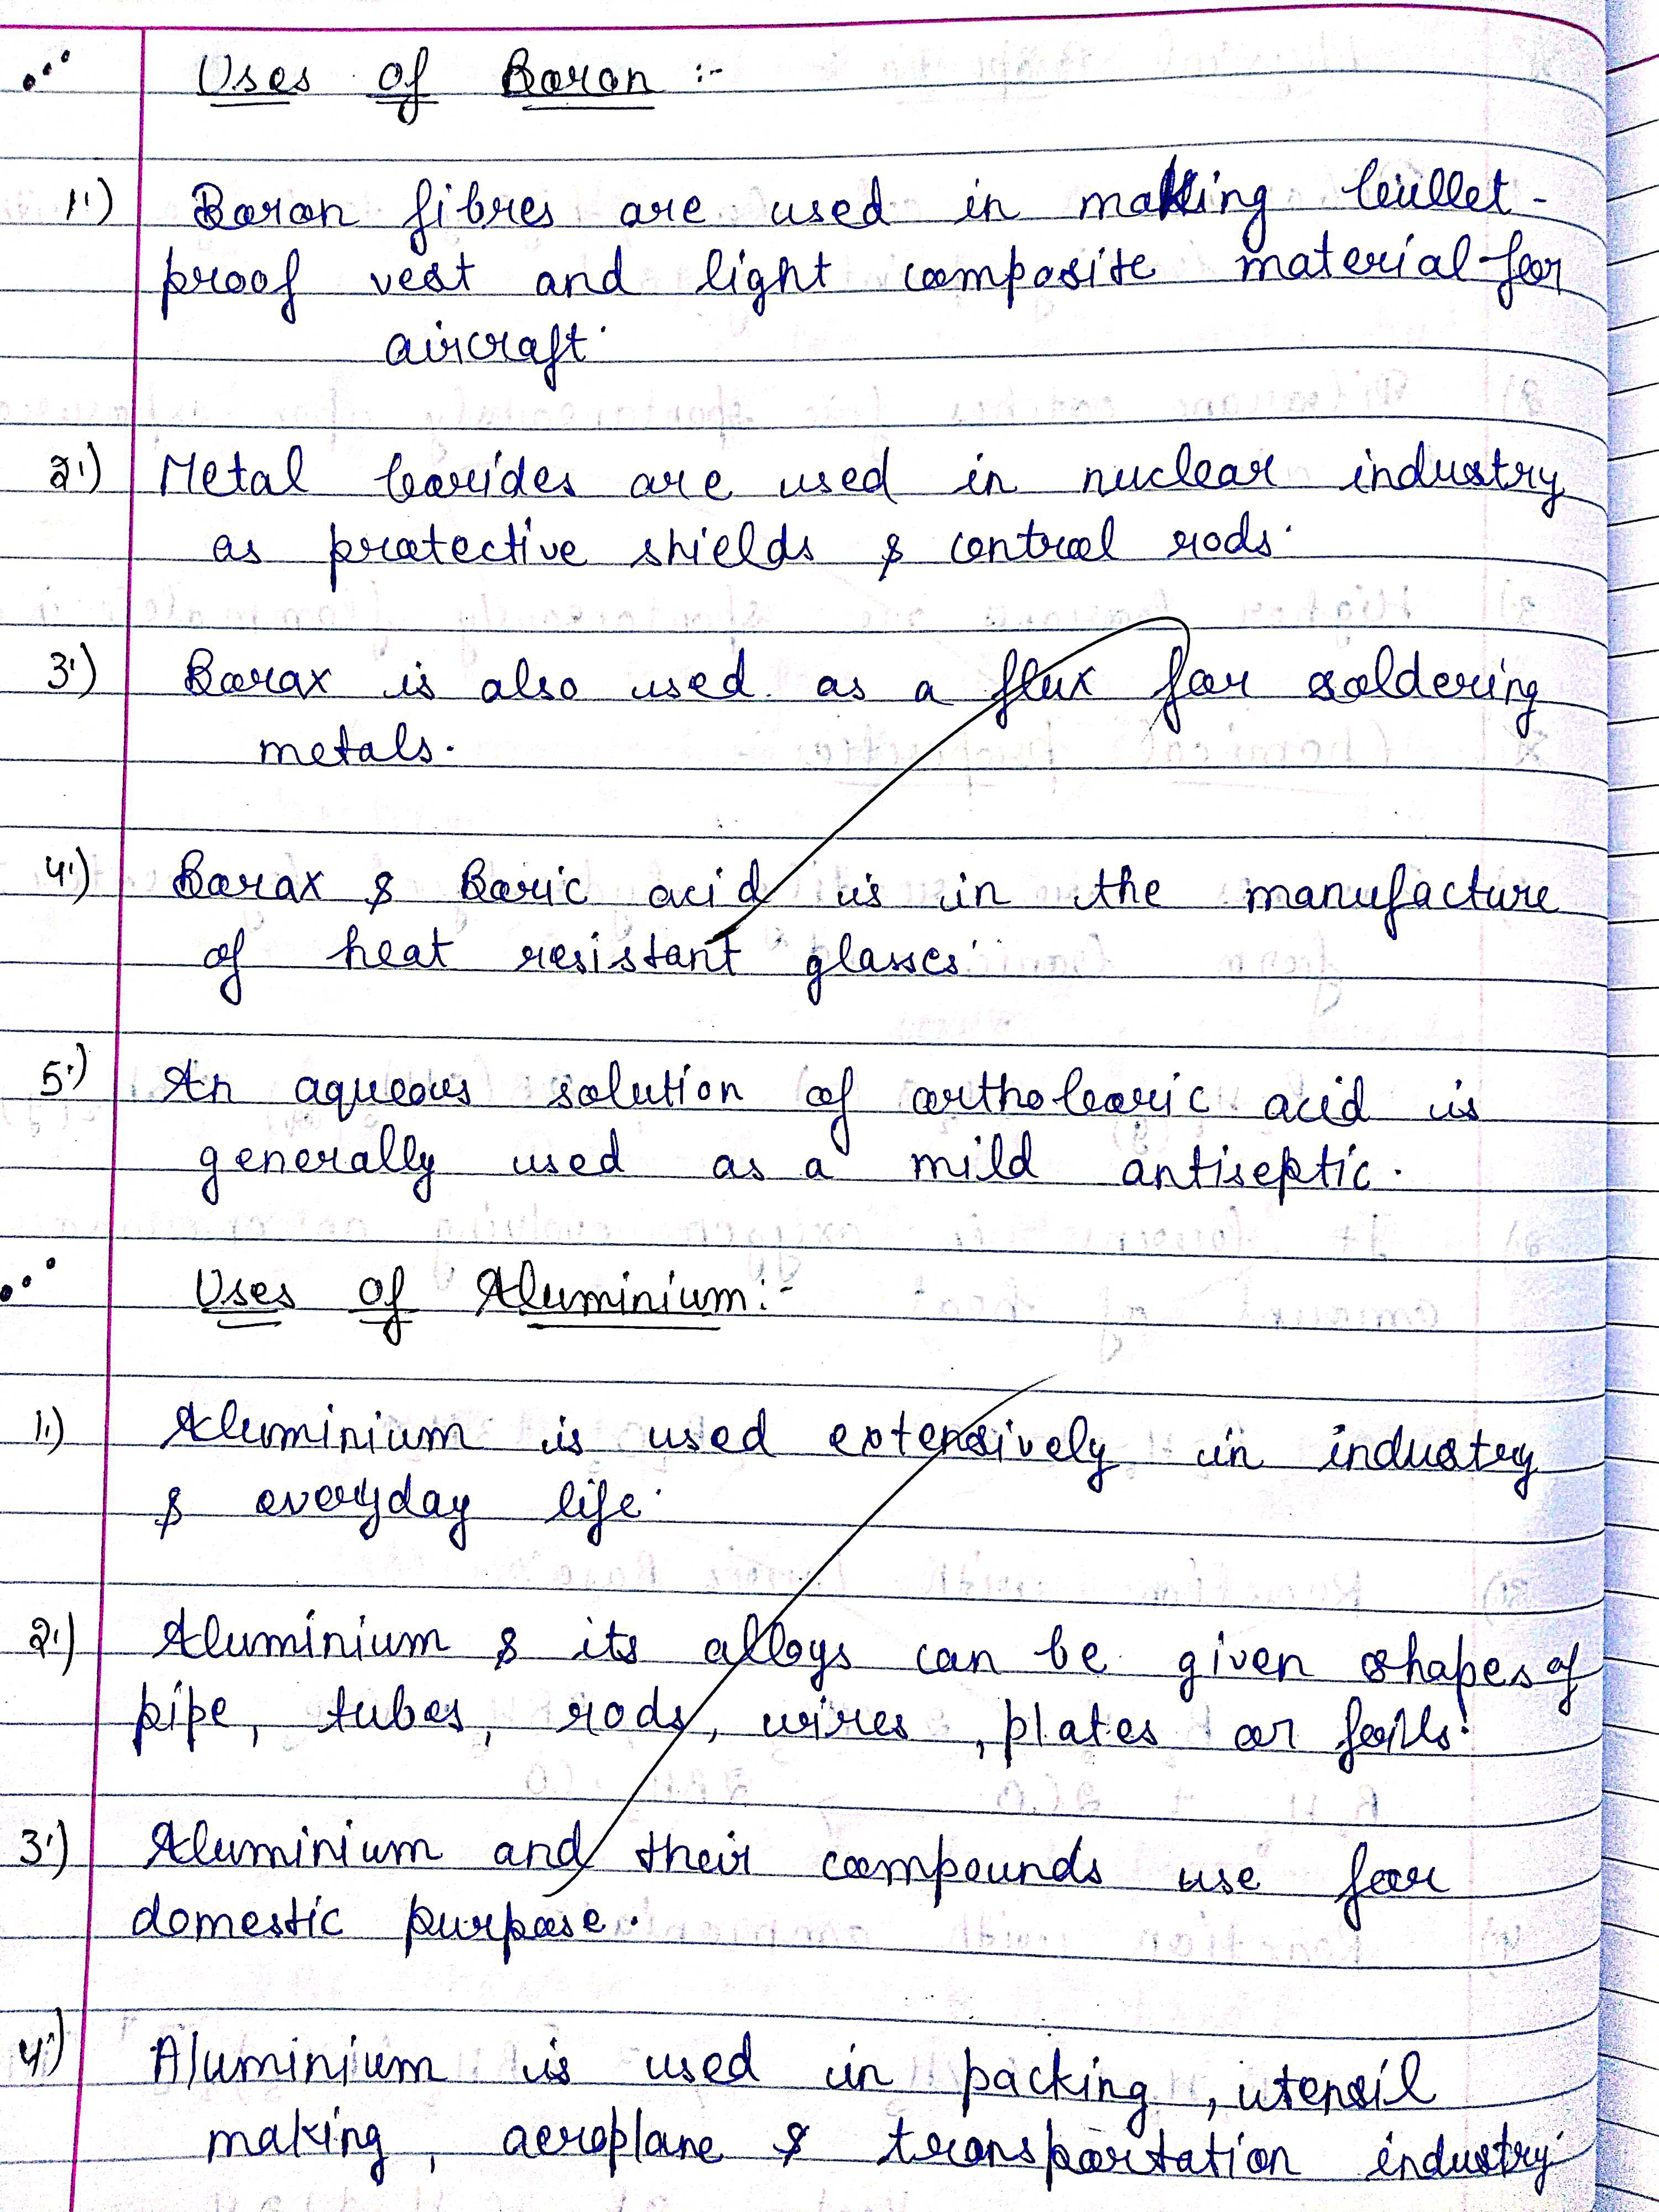 Uses of Boron :-
1.) Boron fibres are used in making bullet-
proof vest and light composite material for
aircraft.
2.) Metal borides are used in nuclear industry
as protective shields & control rods.
3.) Borax is also used as a flux for soldering
metals.
4.) Borax & Boric acid is in the manufacture
of heat resistant glasses.
5.) An aqueous solution of orthoboric acid is
generally used as a mild antiseptic.
Uses of Aluminium:-
1.) Aluminium is used extensively in industry
& everyday life.
2.) Aluminium & its alloys can be given shapes of
pipe, tubes, rods, wires, plates or foils.
3.) Aluminium and their compounds use for
domestic purpose.
4.) Aluminium is used in packing, utensil
making, aeroplane & transportation industry.